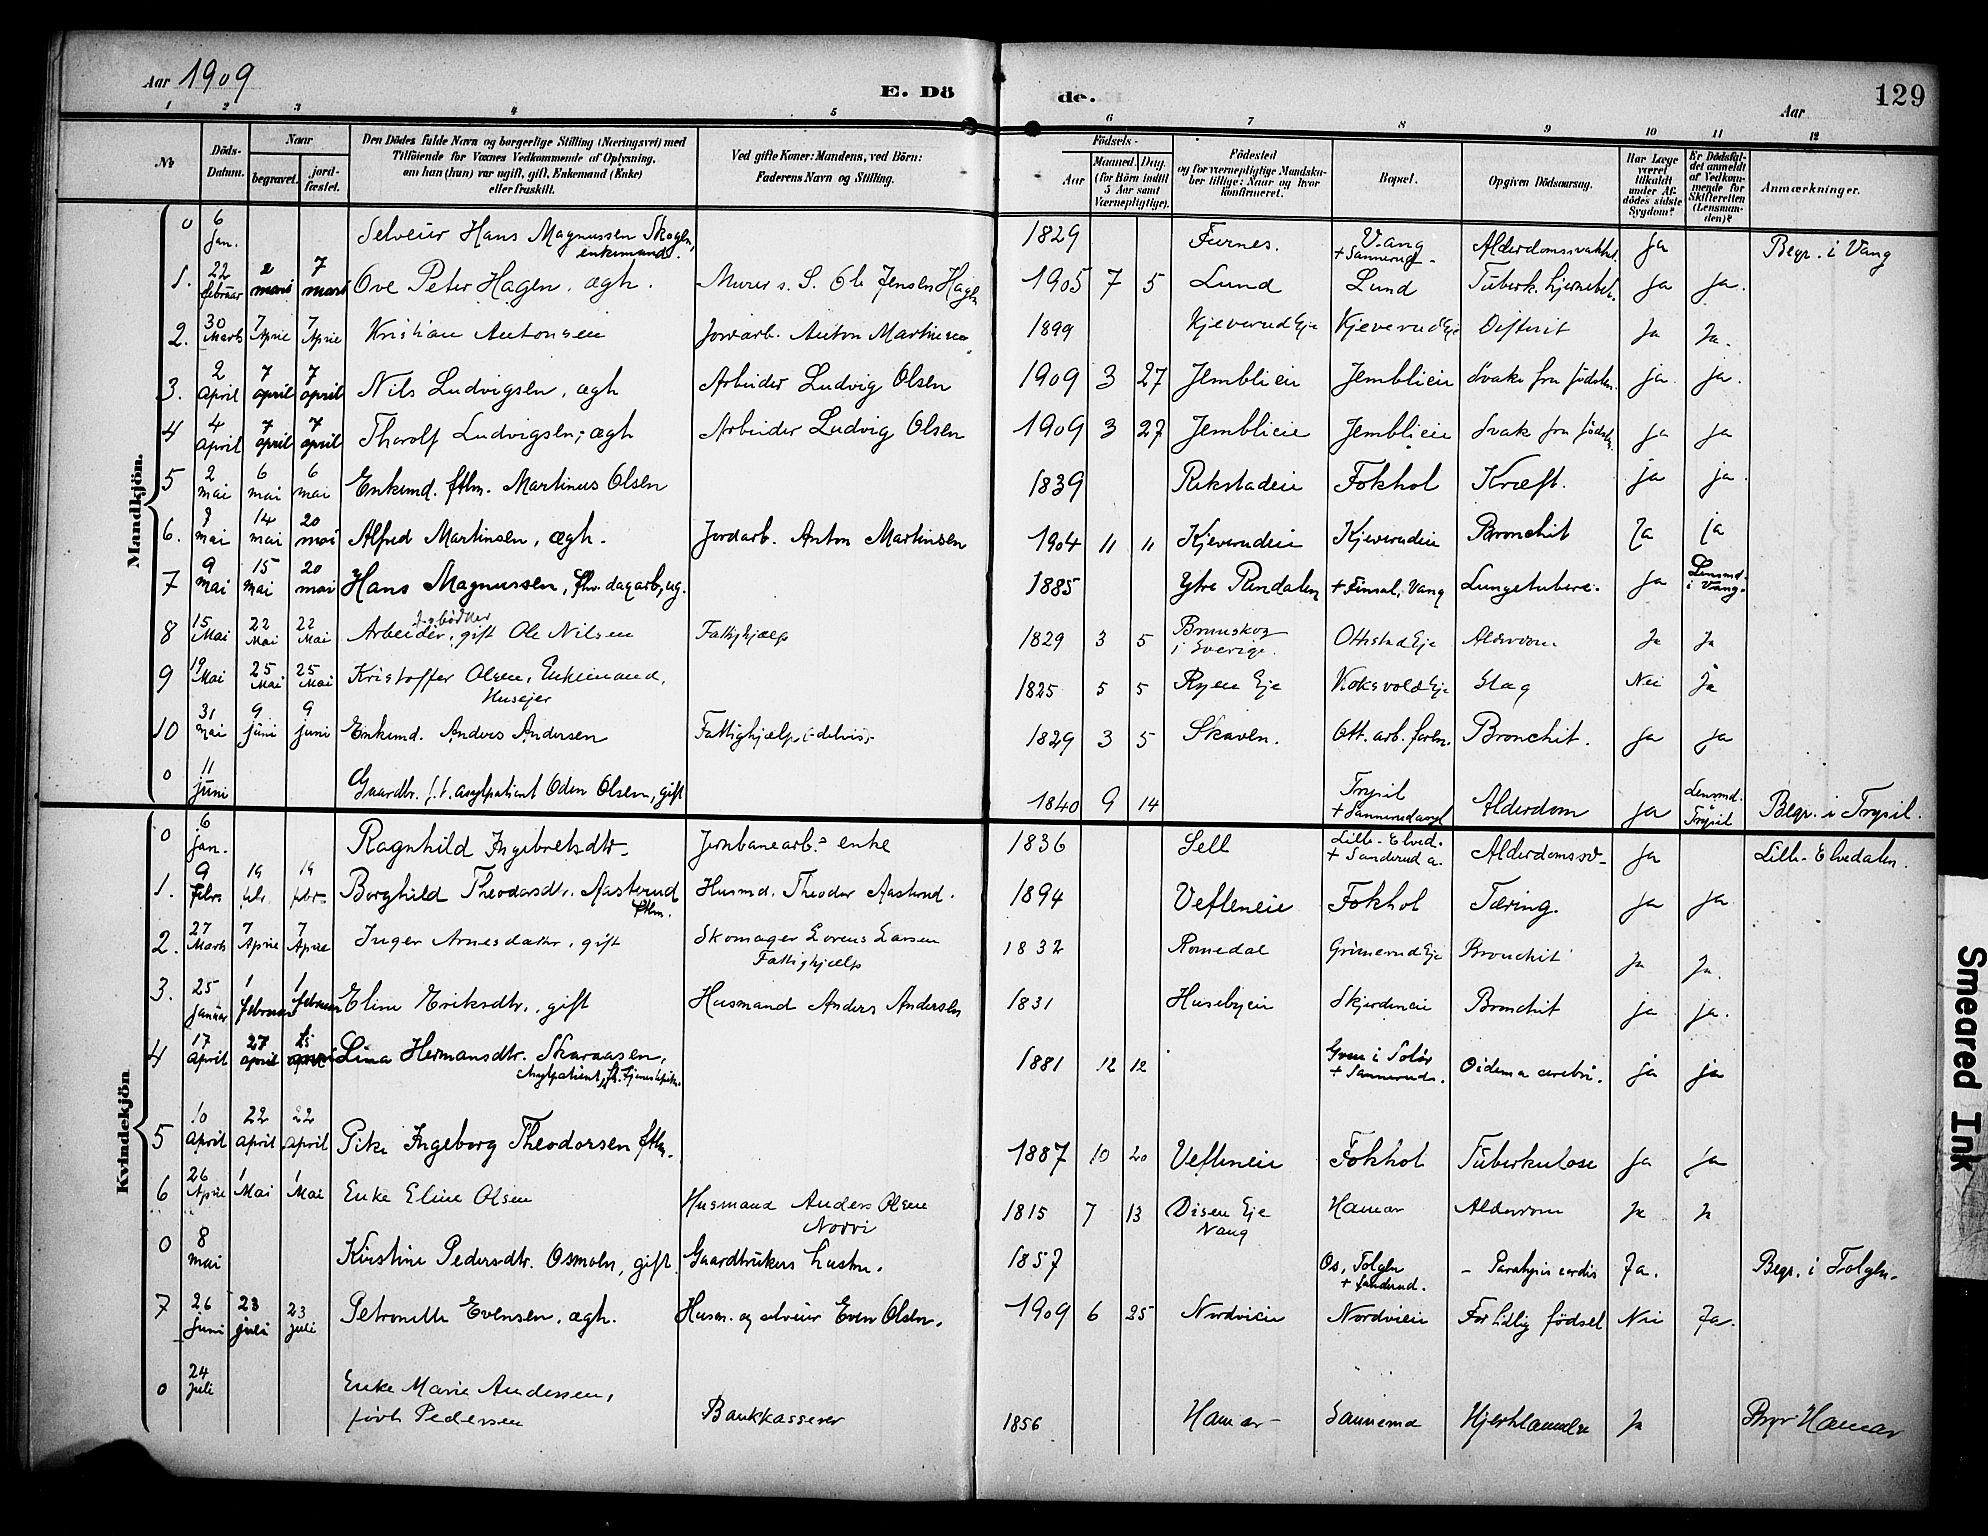 Aar 1909
E. Dö
de.
Aar
129
1 2 3 4 5 6 7 8 9 10 11 12
№
Döds-
Datum.
Naar
begravet.
jord-
fæstet.
Den Dödes fulde Navn og borgerlige Stilling (Næringsvei) med
Tilföiende for Voxnes Vedkommende af Oplysning,
om han (hun) var ugift, gift, Enkemand (Enke)
eller fraskilt.
Ved gifte Koner: Mandens, ved Börn:
Faderens Navn og Stilling.
Födsels-
Aar
Maaned.
Dag.
(for Börn indtil
5 Aar samt
Værnepligtige).
Födested
og for værnepligtige Mandska-
ber tillige: Naar og hvor
konfirmeret.
Bopæl.
Opgiven Dödsaarsag.
Har Læge
været
tilkaldt
under Af-
dödes sidste
Sygdom?
Er Dödsfal-
det anmeldt
af Vedkom-
mende for
Skifteretten
(Lensman-
den)?
Anmærkninger.
Mandkjön.
0 6 jan. Selveier Hans Magnussen Skogen, enkemand. 1829 Furnes. Vang + Sannerud - Alderdomssvakhet ja Begr. i Vang
1. 22 februar 2 mars 7 mars Ove Peter Hagen, ægh. Murer s. S. Ole Jensen Hagen 1905 7 5 Lund Lund Tuberk. hjernebet. ja ja.
2. 30 Marts 7 April 7 April Kristian Antonsen Jordarb. Anton Martinsen 1899 Kjeverud Eje Kjeverud Eje Difterit Ja Ja.
3. 2 April 7 april 7 april Nils Ludvigsen, ægh Arbeider Ludvig Olsen 1909 3 27 Jemblieie Jemblieie Svake fra fødselen. ja ja.
4 4 April 7 april 7 april Tharolf Ludvigsen, ægh Arbeider Ludvig Olsen 1909 3 27 Jemblieie Jemblieie Svak fra fødselen. ja ja
5 2 mai 6 mai 6 mai Enkemd. fthm. Martinus Olsen 1839 Rekstadeie Fokhol Kræft. ja ja
6. 9 mai 14 mai 20 mai Alfred Martinsen, ægh. Jordarb. Anton Martinsen 1904 11 11 Kjeverudeie Kjeverudeie Bronchit Ja ja
7 9 mai 15 mai 20 mai Hans Magnussen, fhv. dagarb., ug. 1885 Ytre Rendalen + Finsal, Vang Lungetuberc. ja Lensmd. i Vang.
8 15 Mai 22 Mai 22 Mai Arbeider, gift Ole Nilsen Fattighjælp 1829 3 5 Brunskog i Sverige. Ottestad Eje Alderdom Ja Ja
9 19 Mai 25 Mai 25 Mai Kristoffer Olsen, Enkemand, Husejer 1825 5 5 Ryen Eje Voksvold Eje Slag Nei Ja
10 31 mai 9 juni 9 juni Enkemd. Anders Andersen Fattighjælp, -delvis- 1829 3 5 Skaven. Ott. arb. foren. Bronchit. ja ja
0 11 juni Gaardbr. f. t. asylpatient Oden Olsen, gift 1840 9 14 Trysil + Sannerudasyl Alderdom ja Lensmd. i Trysil Begr. i Trysil.
Kvindekjön.
0 6 jan. Ragnhild Ingebretsdtr. Jernbanearb.s enke 1836 Sell Lille-Elved. + Sanderud a. Alderdomssv- ja Lille-Elvedalen.
1. 9 febr. 19 febr. 19 febr. Borghild Theodorsdtr. Aasterud fthm. Husmd. Theodor Aasterud. 1894 Vefleneie Fokhol Tæring. ja ja
2. 27 Marts 7 April 7 April Inger Arnesdatter, gift Skomager Lorens Larsen Fattighjælp 1832 Romedal Grimerud Eje Bronchit Ja Ja.
3. 25 januar 1 februar 1 februar Eline Eriksdtr., gift Husmand Anders Andersen 1831 Husebyeie Skjerdeneie Bronchit ja ja.
4 17 april 27 april april Lina Hermansdtr. Skaraasen, Asylpatient, fh. tjenestepike. 1881 12 12 Grue i Solør + Sannerud. Oidema cerebri. ja ja
5 10 april 22 april 22 april Pike Ingeborg Theodorsen fthm. 1887 10 20 Vefleneie Fokhol Tuberkulose ja ja
6 26 April 1 Mai 1 Mai Enke Eline Olsen Husmand Anders Olsen Nordvi 1815 7 13 Disen Eje Vang Hamar Alderdom Ja Ja
0 8 mai Kirstine Pedersdtr. Osmoen, gift. Gaardbrukers hustru. 1857 Os, Tolgen + Sanderud. - Paralysis cordis Ja. Begr. i Tolgen.
7 26 juni 23 juli 23 juli Petronelle Evensen, ægh. Husm. og selveier Even Olsen. 1909 6 25 Nordvieie Nordvieie For tidlig fødsel Nei Ja.
0 24 Juli Enke Marie Andersen, født Pedersen Bankkasserer 1856 Hamar - Sannerud Hjertelammelse Ja Begr Hamar
Smeared Ink